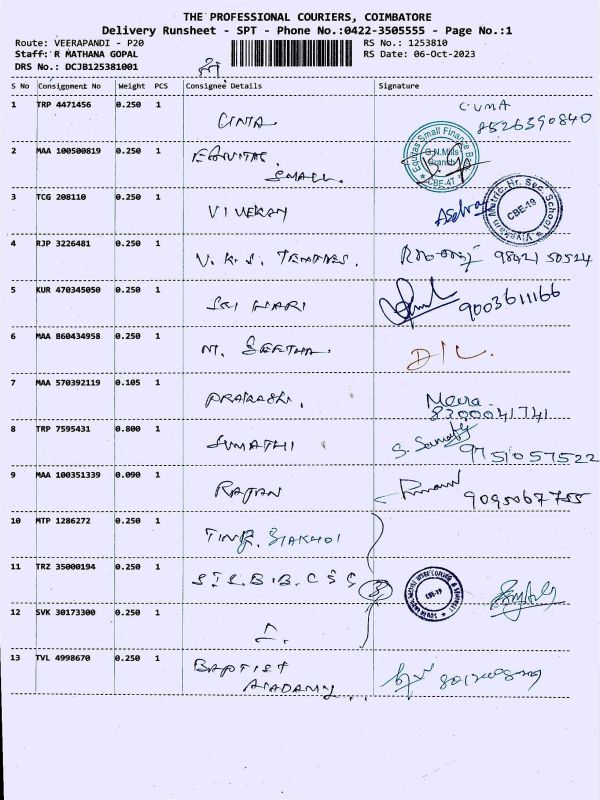 THE PROFESSIONAL COURIERS, COIMBATORE
Delivery Runsheet - SPT - Phone No.:0422-3505555 - Page No.:1
Route: VEERAPANDI - P20 RS No.: 1253810
Staff: R MATHANA GOPAL RS Date: 06-Oct-2023
DRS No.: DCJB125381001
S No Consignment No Weight PCS Consignee Details Signature
1 TRP 4471456 0.250 1 UMA
8526390840
2 MAA 100500819 0.250 1 Equitas Small Finance
SMALL. CBE-47
3 TCG 208110 0.250 1 VIVEKAM CBE-19 Vivekam Matric. Hr. Sec. School
4 RJP 3226481 0.250 1 V. K. S. 98421 50524
5 KUR 470345050 0.250 1 SRI HARI 9003611166
6 MAA 860434958 0.250 1 M. SEETHA. D/L.
7 MAA 570392119 0.105 1 PRAKASH. Meera
8300041741
8 TRP 7595431 0.800 1 SUMATHI S. Sumathy
9751057522
9 MAA 100351339 0.090 1 RAJAN 9095067755
10 MTP 1286272 0.250 1
11 TRZ 35000194 0.250 1 CBE-19
12 SVK 30173300 0.250 1
13 TVL 4998670 0.250 1 BAPTIST
ACADAMY.